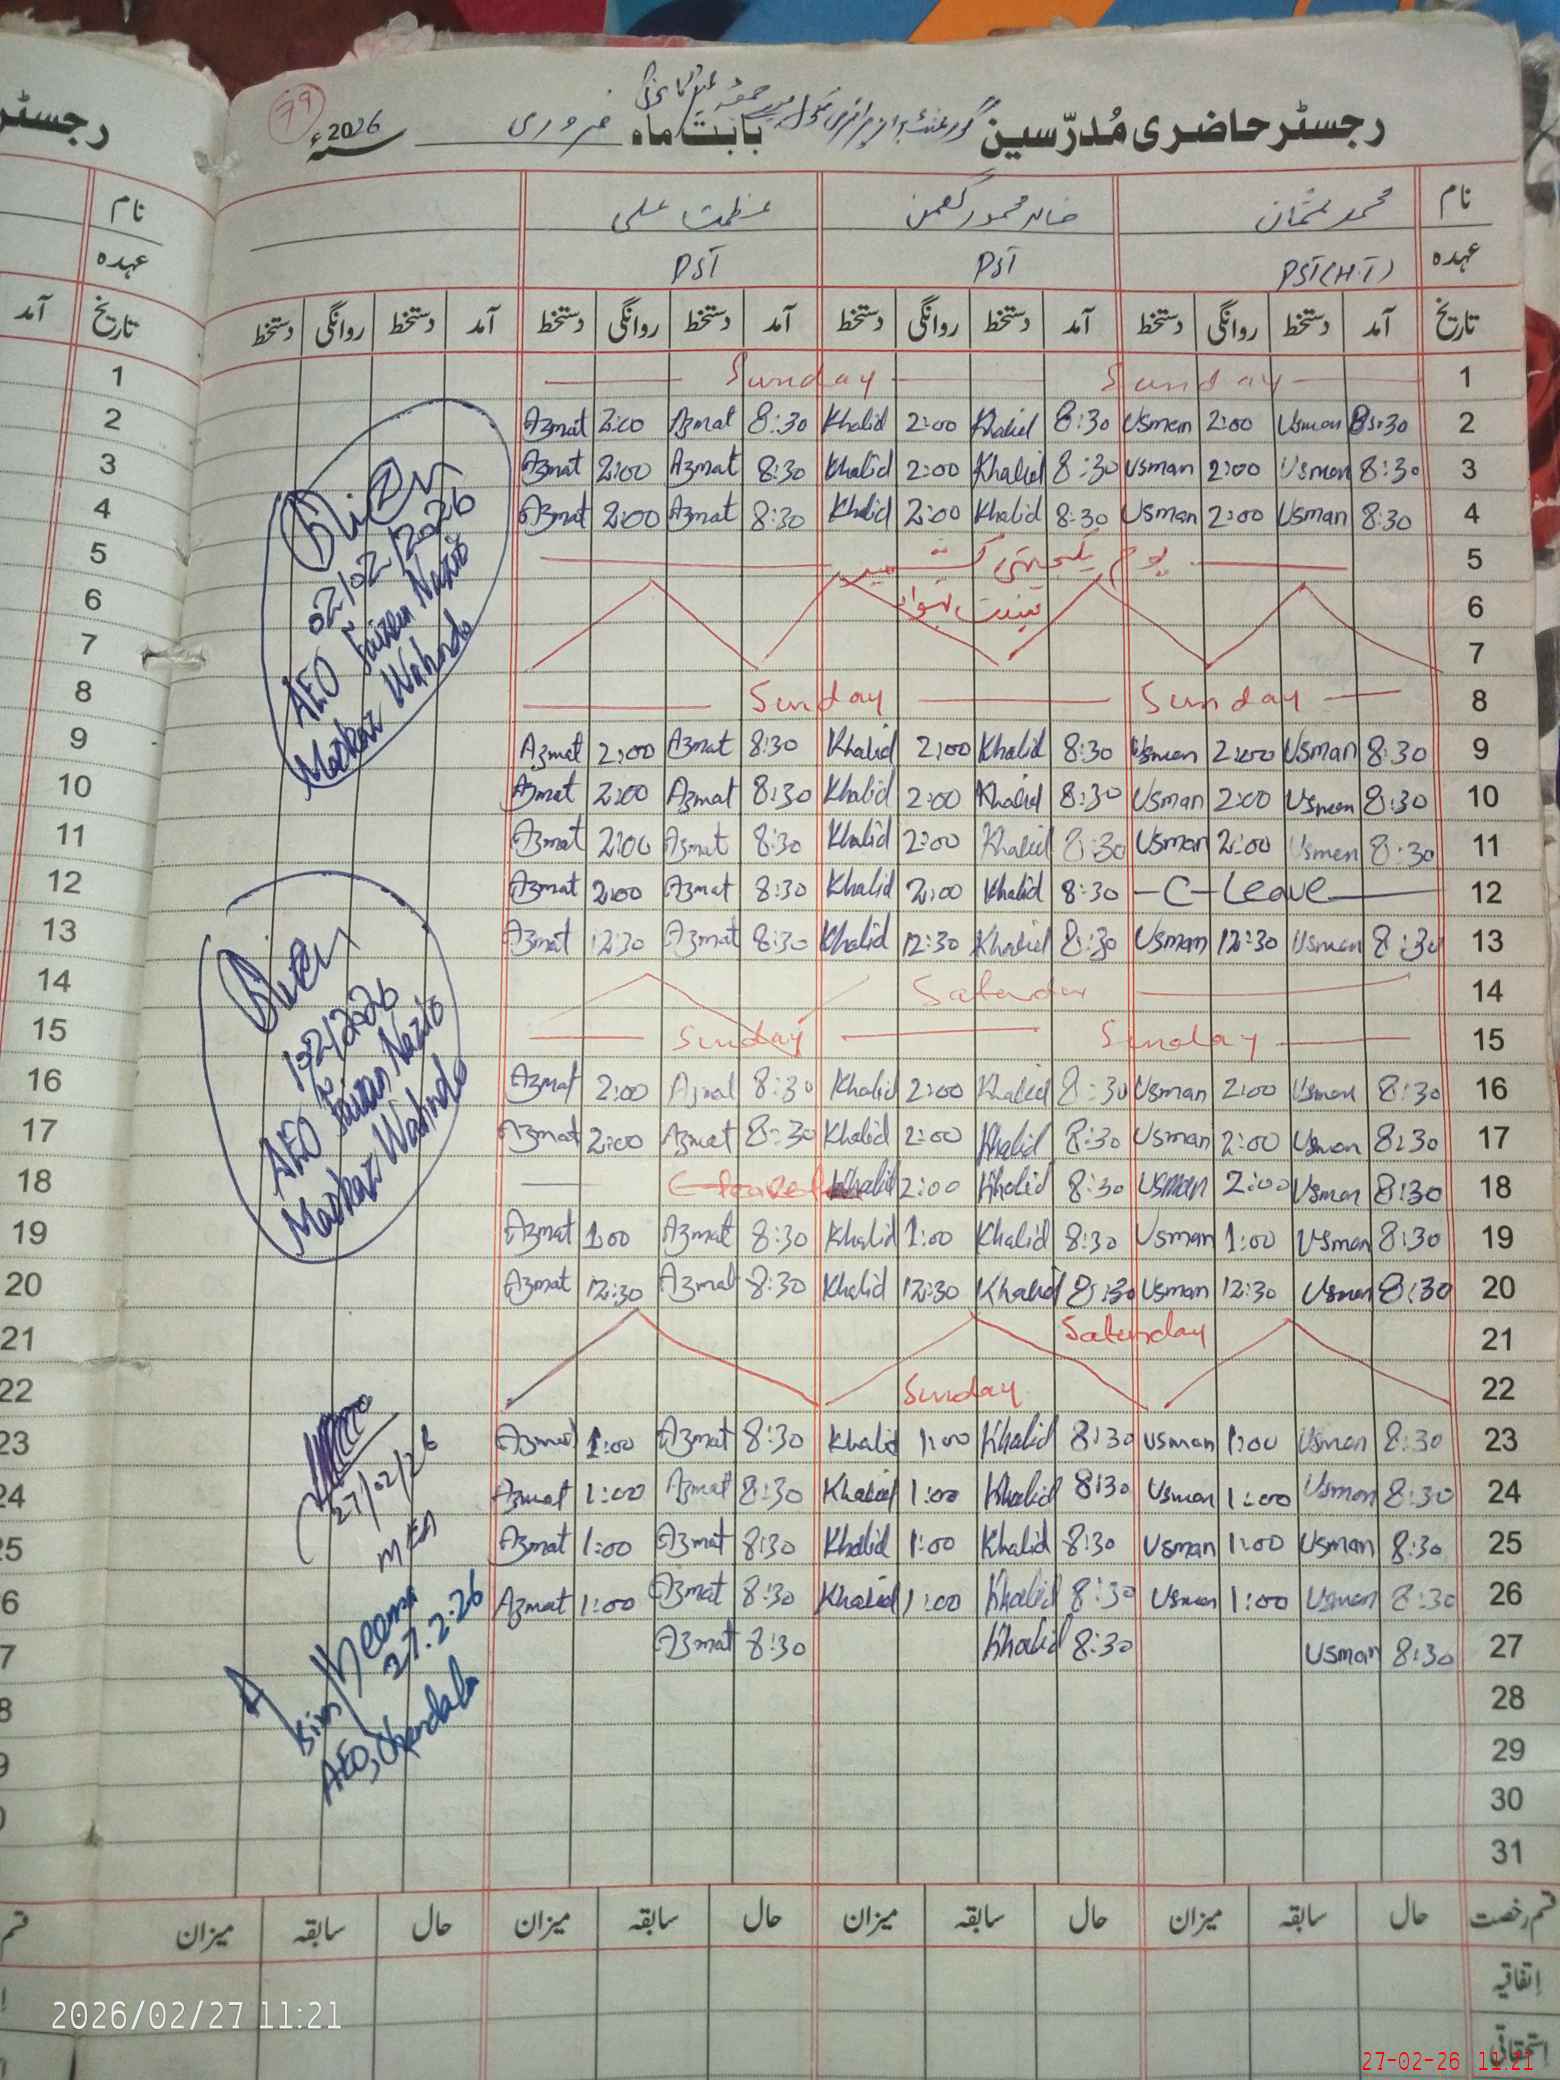 79
رجسٹر حاضری مُدرّسین گورنمنٹ پرائمری سکول بابت ماہ فروری سنہ 2026ء
نام محمد عثمان خالد محمود گھمن عظمت علی
عہدہ PST(H.T) PST PST
تاریخ آمد دستخط روانگی دستخط آمد دستخط روانگی دستخط آمد دستخط روانگی دستخط آمد دستخط روانگی دستخط
Sunday Sunday 1
Azmat 2:00 Azmat 8:30 Khalid 2:00 Khalid 8:30 Usman 2:00 Usman 8:30 2
Azmat 2:00 Azmat 8:30 Khalid 2:00 Khalid 8:30 Usman 2:00 Usman 8:30 3
Azmat 2:00 Azmat 8:30 Khalid 2:00 Khalid 8:30 Usman 2:00 Usman 8:30 4
یوم یکجہتی کشمیر 5
بسنت تہوار 6
7
Sunday Sunday 8
Azmat 2:00 Azmat 8:30 Khalid 2:00 Khalid 8:30 Usman 2:00 Usman 8:30 9
Azmat 2:00 Azmat 8:30 Khalid 2:00 Khalid 8:30 Usman 2:00 Usman 8:30 10
Azmat 2:00 Azmat 8:30 Khalid 2:00 Khalid 8:30 Usman 2:00 Usman 8:30 11
Azmat 2:00 Azmat 8:30 Khalid 2:00 Khalid 8:30 C-Leave 12
Azmat 12:30 Azmat 8:30 Khalid 12:30 Khalid 8:30 Usman 12:30 Usman 8:30 13
Saturday 14
Sunday Sunday 15
Azmat 2:00 Azmat 8:30 Khalid 2:00 Khalid 8:30 Usman 2:00 Usman 8:30 16
Azmat 2:00 Azmat 8:30 Khalid 2:00 Khalid 8:30 Usman 2:00 Usman 8:30 17
C-Leave Khalid 2:00 Khalid 8:30 Usman 2:00 Usman 8:30 18
Azmat 1:00 Azmat 8:30 Khalid 1:00 Khalid 8:30 Usman 1:00 Usman 8:30 19
Azmat 12:30 Azmat 8:30 Khalid 12:30 Khalid 8:30 Usman 12:30 Usman 8:30 20
Saturday 21
Sunday 22
Azmat 1:00 Azmat 8:30 Khalid 1:00 Khalid 8:30 Usman 1:00 Usman 8:30 23
Azmat 1:00 Azmat 8:30 Khalid 1:00 Khalid 8:30 Usman 1:00 Usman 8:30 24
Azmat 1:00 Azmat 8:30 Khalid 1:00 Khalid 8:30 Usman 1:00 Usman 8:30 25
Azmat 1:00 Azmat 8:30 Khalid 1:00 Khalid 8:30 Usman 1:00 Usman 8:30 26
Azmat 8:30 Khalid 8:30 Usman 8:30 27
28
29
30
31
02/02/2026
AEO Faizan Nazir
Markaz Wahndo
02/2026
AEO Faizan Nazir
Markaz Wahndo
27/02/26
MEA
27.2.26
AEO,
قسم رخصت حال سابقہ میزان حال سابقہ میزان حال سابقہ میزان حال سابقہ میزان
اتفاقیہ
استحقاقی
رجسٹر
نام
عہدہ
تاریخ آمد
1
2
3
4
5
6
7
8
9
10
11
12
13
14
15
16
17
18
19
20
21
22
23
24
25
2026/02/27 11:21
27-02-26 11:21